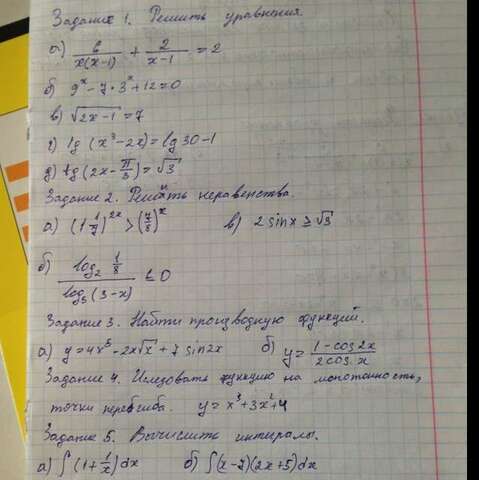 Задание 1. Решить уравнения.
а) 6/x(x-1) + 2/x-1 = 2
б) 9^x - 7 · 3^x + 12 = 0
в) √2x-1 = 7
г) lg (x³-2x) = lg 30 - 1
д) tg (2x - π/3) = √3
Задание 2. Решить неравенства.
а) (1 1/7)^2x > (7/8)^x в) 2 sin x ≥ √3
б) log₂ 1/8 / log₅ (3-x) ≤ 0
Задание 3. Найти производную функций.
а) y = 4x⁵ - 2x√x + 7 sin 2x б) y = 1 - cos 2x / 2 cos x
Задание 4. Иследовать функцию на монотонность,
точки перегиба. y = x³ + 3x² + 4
Задание 5. Вычислить интегралы.
а) ∫ (1 + 1/x) dx б) ∫ (x-7)(2x+5) dx